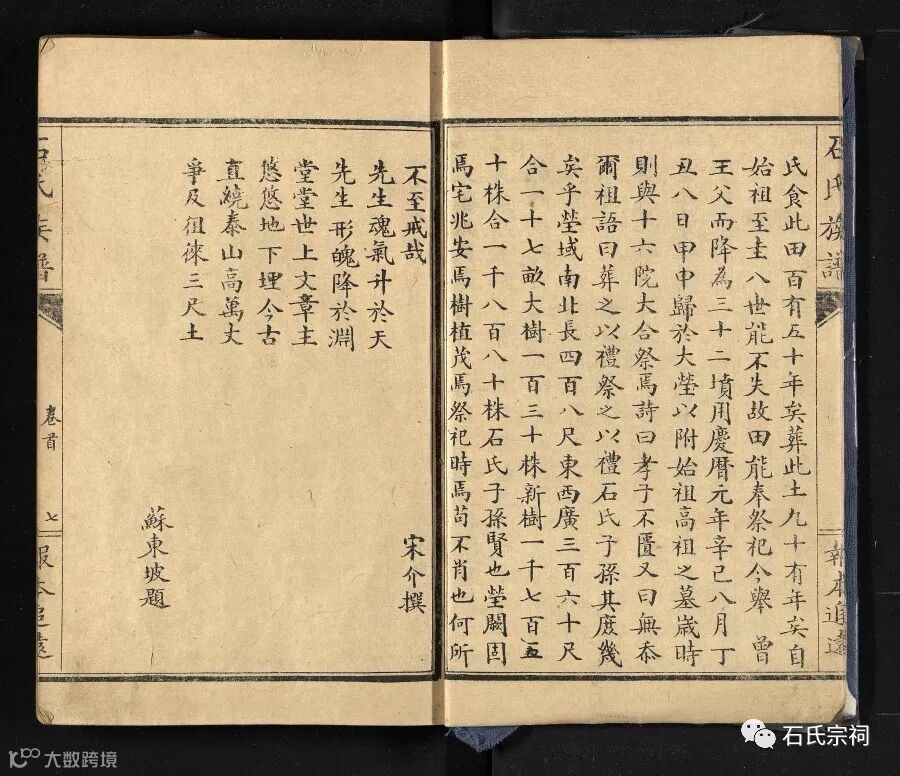 石氏族譜
報本追遠
氏食此田百有五十年矣葬此土九十有年矣自
始祖至圭八世能不失故田能奉祭祀今舉　曾
王父而降為三十二墳用慶曆元年辛巳八月丁
丑八日甲申歸於大塋以附始祖高祖之墓歲時
則與十六院大合祭焉詩曰孝子不匱又曰無忝
爾祖語曰葬之以禮祭之以禮石氏子孫其庶幾
矣乎塋域南北長四百八尺東西廣三百六十尺
合一十七畝大樹一百三十株新樹一千七百五
十株合一千八百八十株石氏子孫賢也塋闕固
焉宅兆安焉樹植茂焉祭祀時焉苟不肖也何所
不至戒哉　　宋介撰
先生魂氣升於天
先生形魄降於淵
堂堂世上文章主
悠悠地下埋今古
直繞泰山高萬丈
爭及徂徠三尺土
蘇東坡題
石氏族譜
卷首
七
報本追遠
石氏宗祠
大数跨境